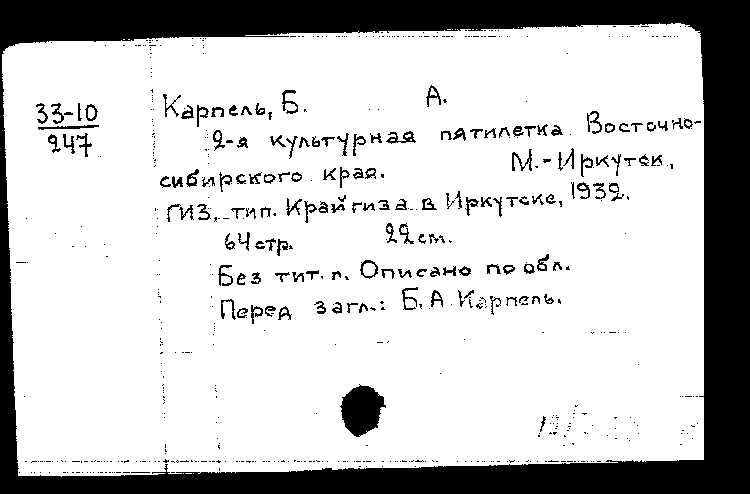 33-10
247
Карпель, Б. А.
2-я культурная пятилетка Восточно-
сибирского края. М.-Иркутск,
ГИЗ, тип. Крайгиза в Иркутске, 1932.
64 стр. 22 см.
Без тит. л. Описано по обл.
Перед загл.: Б. А. Карпель.